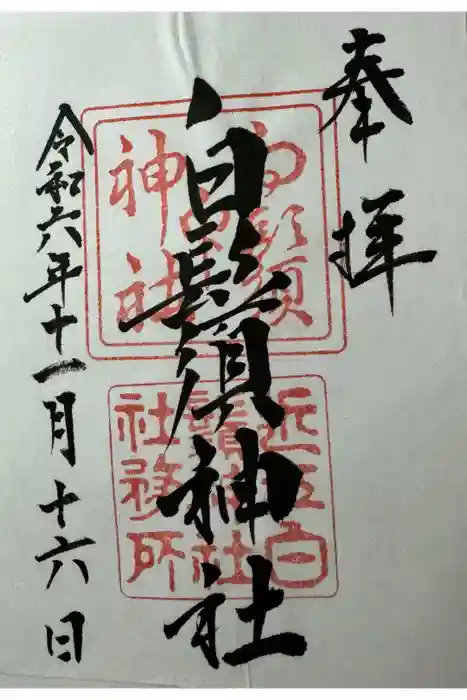 奉拝
白鬚神社
令和六年十一月十六日
白鬚
神社
近江白
鬚神社
社務所